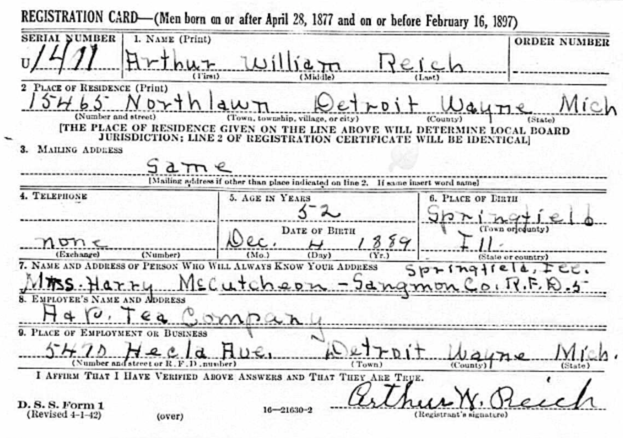 REGISTRATION CARD—(Men born on or after April 28, 1877 and on or before February 16, 1897)
SERIAL NUMBER 1. NAME (Print) ORDER NUMBER
U 1411 Arthur William Reich
(First) (Middle) (Last)
2 PLACE OF RESIDENCE (Print)
15465 Northlawn Detroit Wayne Mich
(Number and street) (Town, township, village, or city) (County) (State)
[THE PLACE OF RESIDENCE GIVEN ON THE LINE ABOVE WILL DETERMINE LOCAL BOARD
JURISDICTION; LINE 2 OF REGISTRATION CERTIFICATE WILL BE IDENTICAL]
3. MAILING ADDRESS
Same
[Mailing address if other than place indicated on line 2. If same insert word same]
4. TELEPHONE 5. AGE IN YEARS 6. PLACE OF BIRTH
52 Springfield
DATE OF BIRTH (Town or county)
none Dec. 4 1889 Ill.
(Exchange) (Number) (Mo.) (Day) (Yr.) (State or country)
7. NAME AND ADDRESS OF PERSON WHO WILL ALWAYS KNOW YOUR ADDRESS Springfield, Ill.
Mrs. Harry McCutcheon - Sangmon Co. R.F.D. 5
8. EMPLOYER'S NAME AND ADDRESS
A&P. Tea Company
9. PLACE OF EMPLOYMENT OR BUSINESS
5470 Hecla Ave. Detroit Wayne Mich.
(Number and street or R. F. D. number) (Town) (County) (State)
I AFFIRM THAT I HAVE VERIFIED ABOVE ANSWERS AND THAT THEY ARE TRUE.
Arthur W. Reich
D. S. S. Form 1
(Revised 4-1-42) (over) 16—21630-2 (Registrant's signature)